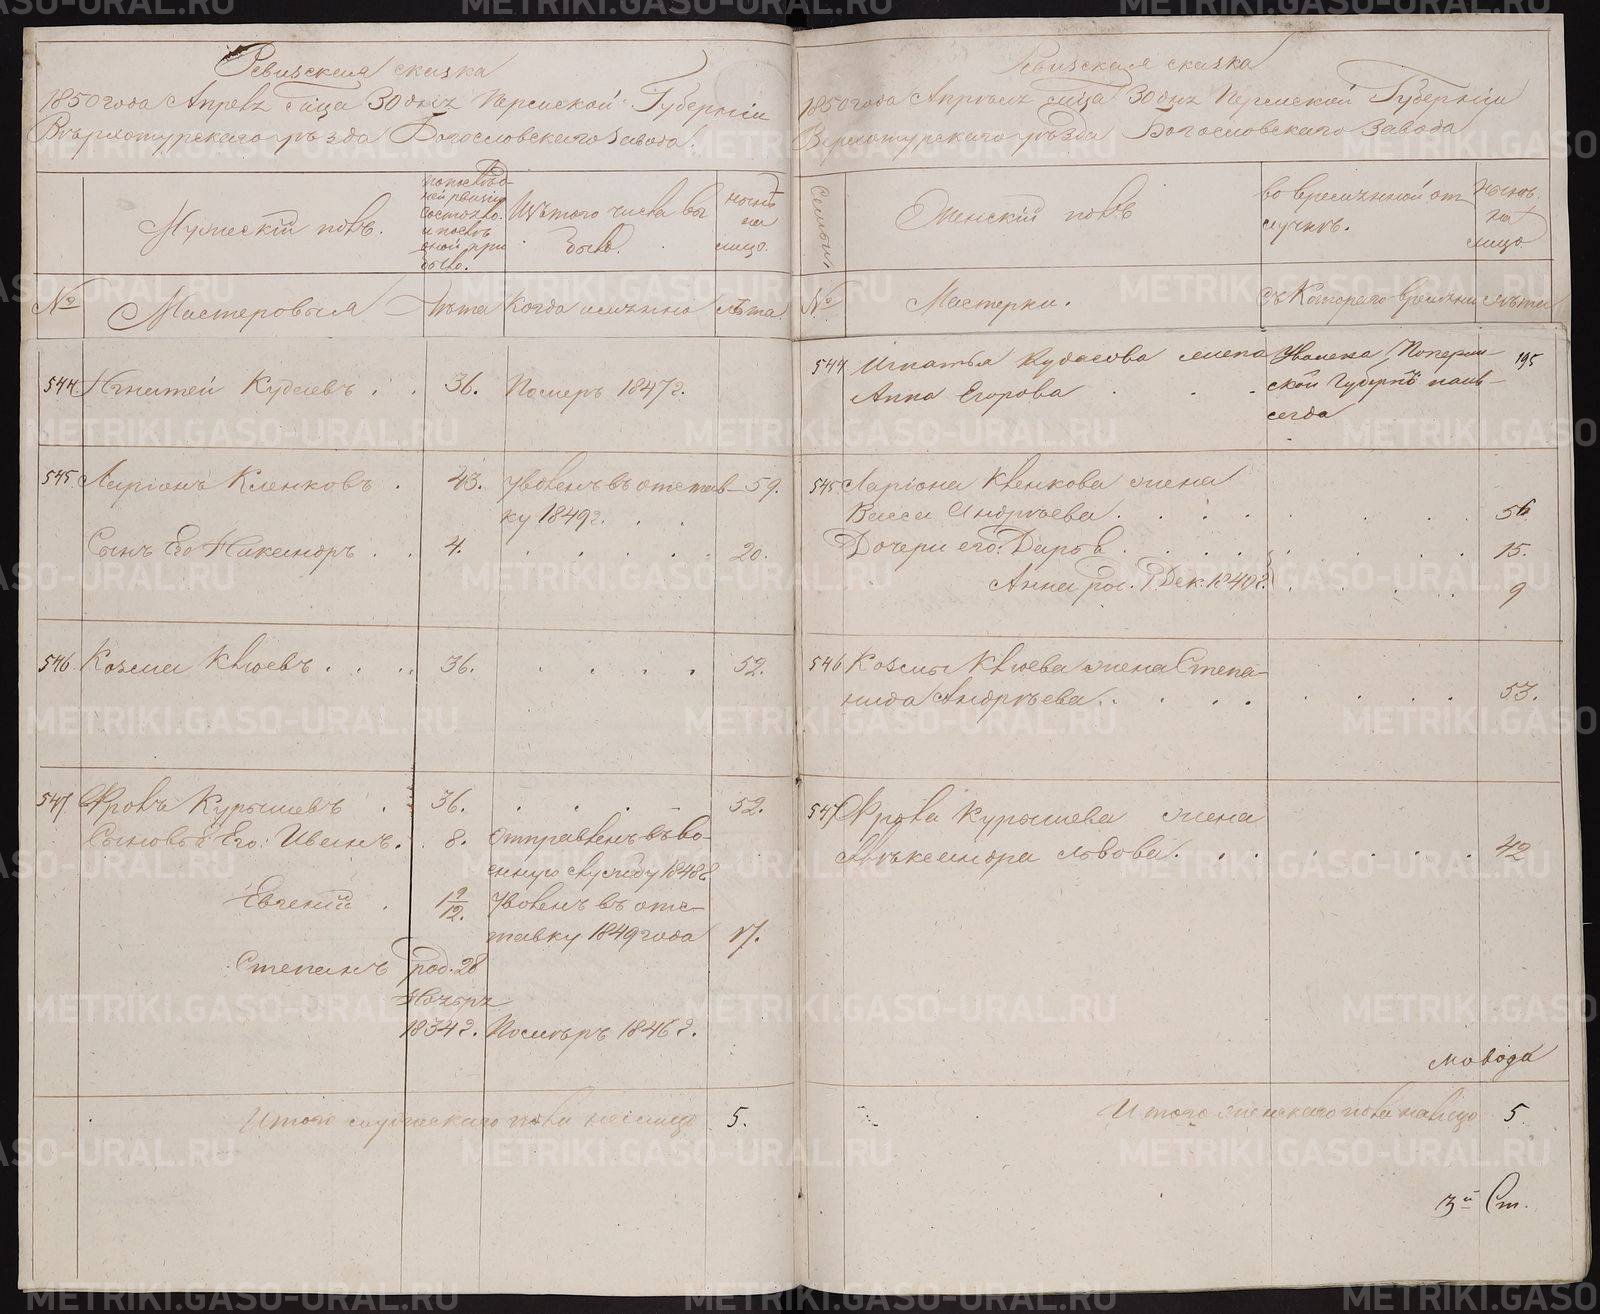 Ревизская сказка
1850 года Апреля м-ца 30 дня Пермской Губерніи
Верхотурскаго уѣзда Богословскаго Завода.
Мужескій полъ.
по послѣд-
ней ревизіи
состояло
и послѣ
оной при
было.
Изъ того числа вы
было.
нынѣ
на
лицо.
№
Мастеровыя
Лѣта
Когда именно
Лѣта
544
Игнатей Кудасевъ
36.
Померъ 1847 г.
545
Ларіонъ Кленковъ
43.
Уволенъ въ отстав-
ку 1849 г.
59.
Сынъ Его Никаноръ
4.
20.
546
Козма Клюевъ
36.
52.
547
Фролъ Курышевъ
36.
52.
Сыновья Его: Иванъ.
8.
Отправленъ въ во-
енную службу 1848 г.
Евгеній
1 9/12.
Уволенъ въ отс-
тавку 1849 года
17.
Степанъ
род. 28
Ноября
1834 г.
Помѣръ 1846 г.
Итого мужескаго пола на лицо
5.
Ревизская сказка
1850 года Апрѣля м-ца 30 дня Пермской Губерніи
Верхотурскаго уѣзда Богословскаго Завода
Семьи
Женскій полъ
во временной от
лучкѣ.
Нынѣ
на
лицо
№
Мастерки.
съ Котораго времени
лѣта
195
544
Игнатья Кудасова жена
Анна Егорова
Уволена по Перм-
ской Губерніи навсегда
545
Ларіона Кленкова жена
Васса Андрѣева
56
Дочери его: Дарья
15.
Анна род. 1 Дек. 1840 г.
9
546
Козмы Клюева жена Степа-
нида Андрѣева
53.
547
Фрола Курышева жена
Алѣксандра Львова
42
Итого женскаго пола налицо
5
3й Ст.